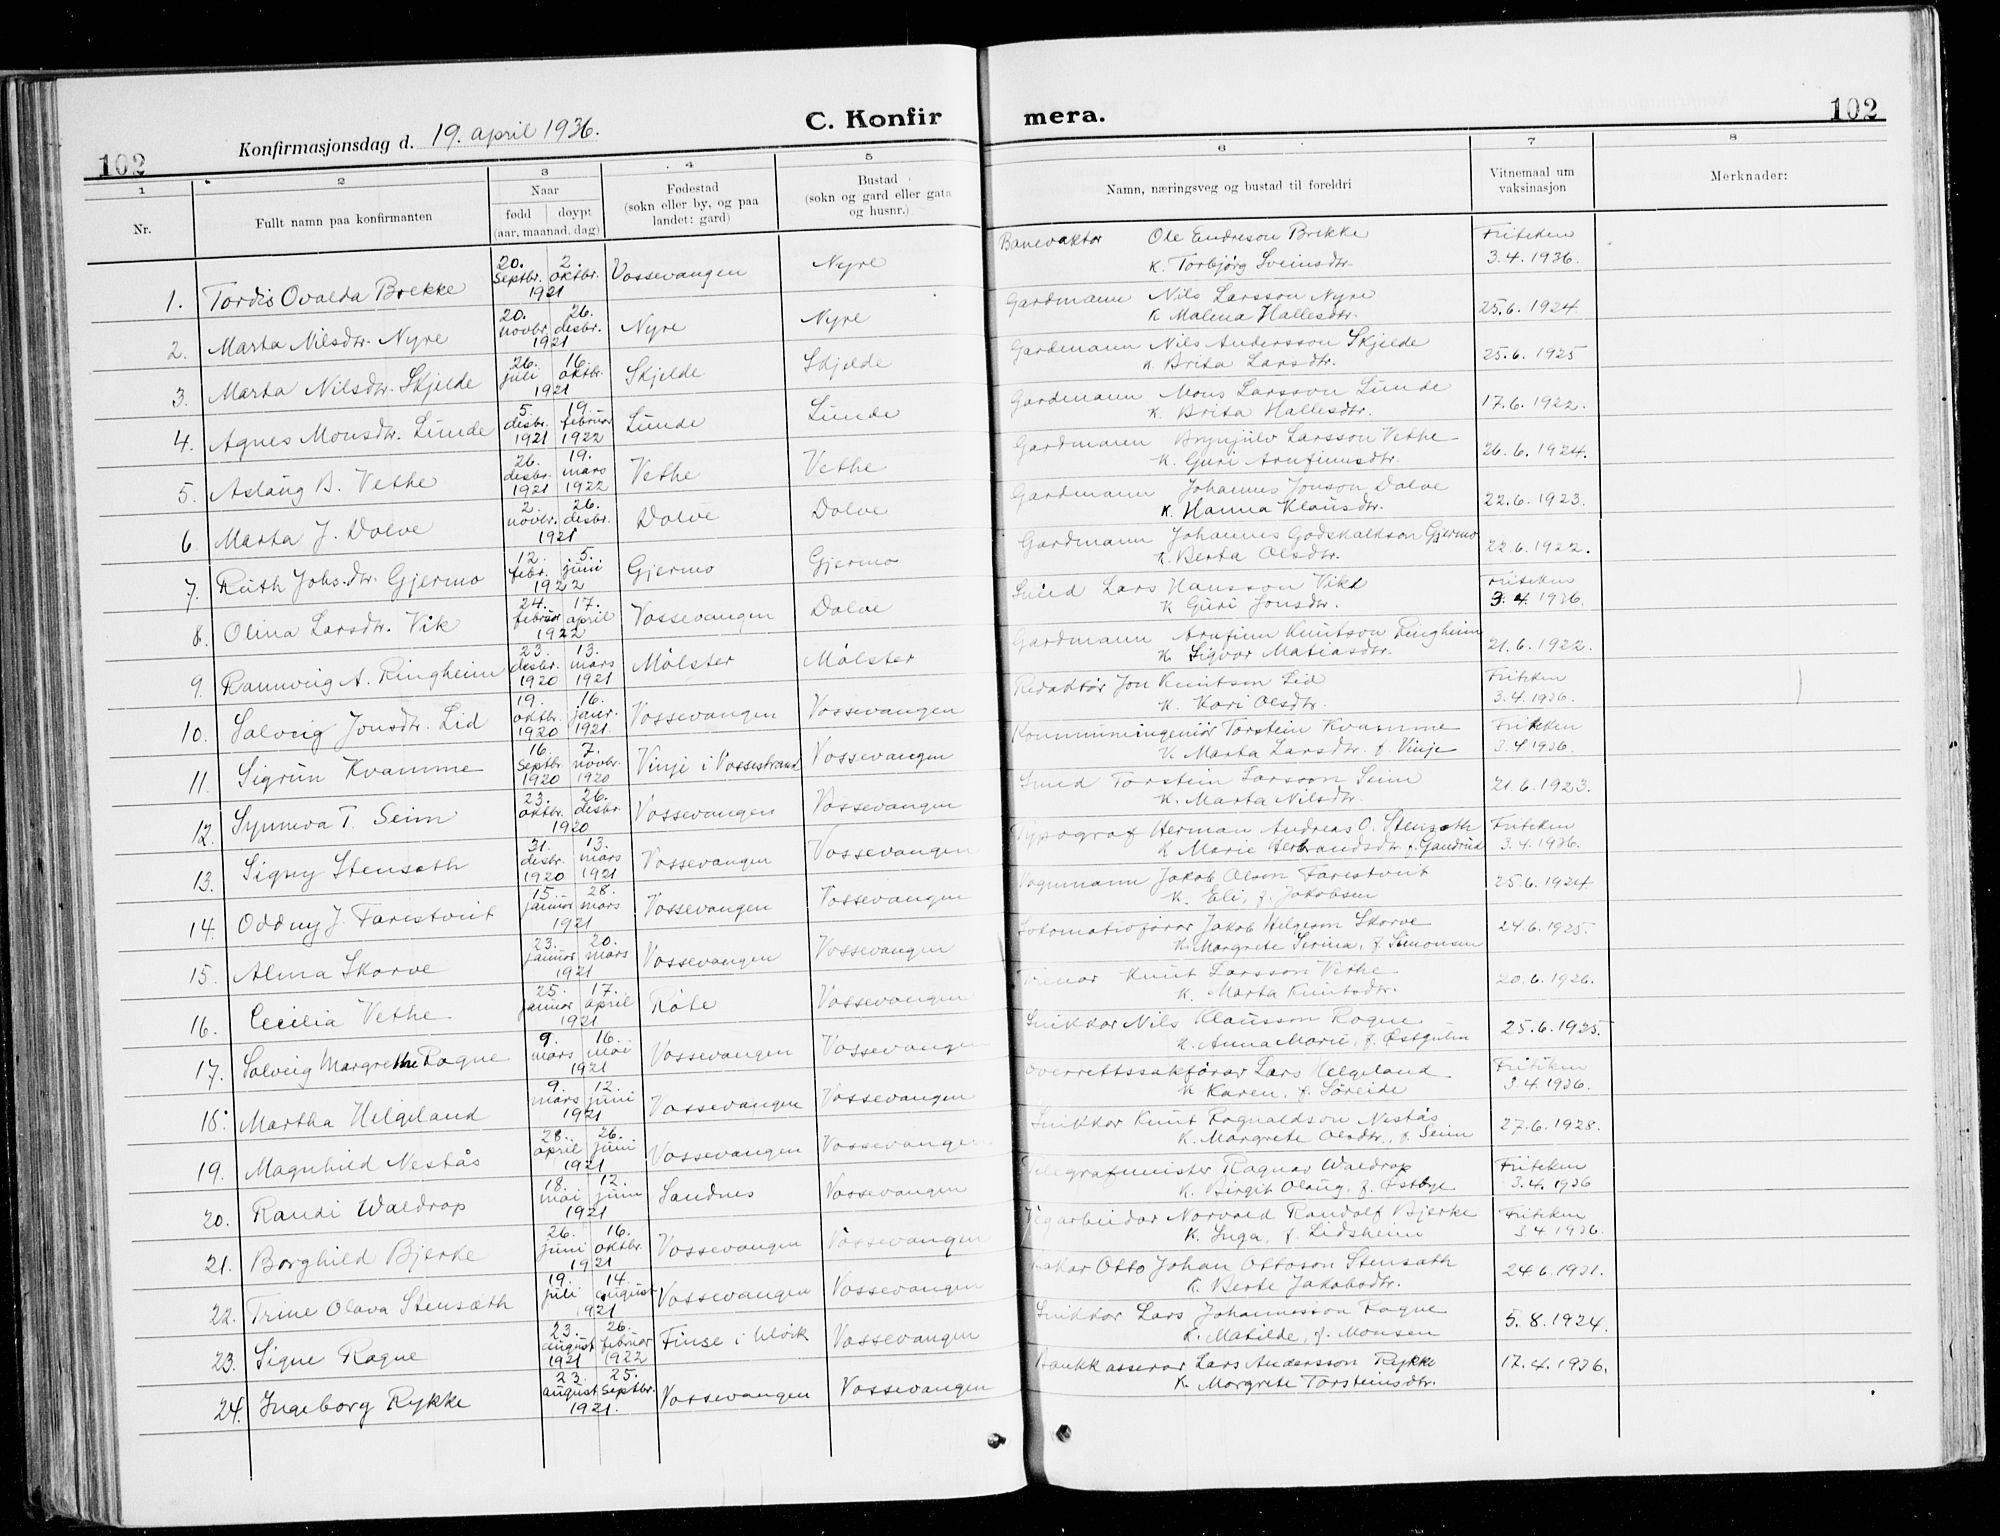 102
Konfirmasjonsdag d. 19. april 1936.
C. Konfir mera.
102
1 2 3 4 5 6 7 8
Nr.
Fullt namn paa konfirmanten
Naar
fødd døypt
(aar, maanad, dag)
Fødestad
(sokn eller by, og paa
landet: gard)
Bustad
(sokn og gard eller gata
og husnr.)
Namn, næringsveg og bustad til foreldri
Vitnemaal um
vaksinasjon
Merknader:
1. Tordis Ovalda Brekke 20. Septbr. 2. oktbr. 1921 Vossevangen Nyre Banevaktor Ole Endreson Brekke K. Torbjørg Sveinsdtr. Friteken 3.4.1936.
2. Marta Nilsdtr. Nyre 20. novbr. 26. desbr. 1921 Nyre Nyre Gardmann Nils Larsson Nyre K. Malena Hallesdtr. 25.6.1924
3. Marta Nilsdtr. Skjelde 26. juli 16. oktbr. 1921 Skjelde Skjelde Gardmann Nils Andersson Skjelde K. Brita Larsdtr. 25.6.1925
4. Agnes Monsdtr. Lunde 5. desbr. 1921 19. februar 1922 Lunde Lunde Gardmann Mons Larsson Lunde K. Brita Hallesdtr. 17.6.1922.
5. Aslaug B. Vethe 26. desbr. 1921 19. mars 1922 Vethe Vethe Gardmann Brynjulv Larsson Vethe K. Guri Arnfinnsdtr. 26.6.1924.
6. Marta J. Dolve 2. novbr. 26. desbr. 1921 Dolve Dolve Gardmann Johannes Jonson Dolve K. Hanna Klausdtr. 22.6.1923.
7. Ruth Johs.dtr. Gjermo 12. febr. 5. juni 1922 Gjermo Gjermo Gardmann Johannes Godskalkson Gjermo K. Berta Olsdtr. 22.6.1922.
8. Olina Larsdtr. Vik 24. februar 17. april 1922 Vossevangen Dolve Smed Lars Hansson Vik K. Guri Jonsdtr. Friteken 3.4.1936.
9. Rannveig A. Ringheim 23. desbr. 1920 13. mars 1921 Mølster Mølster Gardmann Arnfinn Knutson Ringheim K. Sigvor Matiasdtr. 21.6.1922.
10. Solveig Jonsdtr. Lid 19. oktbr. 1920 16. janr. 1921. Vossevangen Vossevangen Redaktør Jon Knutson Lid K. Kari Olsdtr. Friteken 3.4.1936.
11. Sigrun Kvamme 16. Septbr. 1920 7. novbr. 1920 Vinje i Vossestrand Vossevangen Kommuneingeniør Torstein Kvamme K. Marta Larsdtr. f. Vinje Friteken 3.4.1936.
12. Synneva T. Seim 23. oktbr. 26. desbr. 1920 Vossevangen Vossevangen Smed Torstein Larsson Seim K. Marta Nilsdtr. 21.6.1923.
13. Signy Stensæth 31. desbr. 1920 13. mars 1921 Vossevangen Vossevangen Typograf Herman Andreas O. Stensæth K. Marie Herbrandsdtr f. Gandrud Friteken 3.4.1936.
14. Oddny J. Farestveit 15. januar 28. mars 1921 Vossevangen Vossevangen Vognmann Jakob Olson Farestveit K. Eli, f. Jakobsen 25.6.1924
15. Alma Skorve 23. januar 20. mars 1921 Vossevangen Vossevangen Lokomotivførar Jakob Helgeson Skorve K. Margrete Serina, f. Simonsen 24.6.1925.
16. Cecilia Vethe 25. januar 17. april 1921 Røte Vossevangen Knut Larsson Vethe K. Marta Knutsdtr. 20.6.1926.
17. Solveig Margrethe Rogne 9. mars 16. mai 1921 Vossevangen Vossevangen Snikkar Nils Klausson Rogne K. Anna Marie, f. Østgulen 25.6.1925.
18. Martha Helgeland 9. mars 12. juni 1921 Vossevangen Vossevangen Overrettssakførar Lars Helgeland K. Karen, f. Søreide Friteken 3.4.1936.
19. Magnhild Nestås 28. april 26. juni 1921 Vossevangen Vossevangen Snikkar Knut Rognaldson Nestås K. Margrete Olsdtr., f. Seim 27.6.1928.
20. Randi Waldrop 18. mai 12. juni 1921 Sandnes Vossevangen Telegrafmeister Ragnar Waldrop K. Birgit Olaug, f. Østbye. Friteken 3.4.1936
21. Borghild Bjerke 26. juni 16. oktbr. 1921 Vossevangen Vossevangen Vegarbeidar Norvald Randolf Bjerke K. Inga, f. Lidsheim Friteken 3.4.1936.
22. Trine Olava Stensæth 19. juli 14. august 1921 Vossevangen Vossevangen Otto Johan Ottoson Stensæth K. Berte Jakobsdtr. 24.6.1931.
23. Signe Rogne 23. august 1921 26. februar 1922 Finse i Ulvik Vossevangen Snikkar Lars Johannesson Rogne K. Matilde, f. Monsen 5.8.1924.
24. Ingeborg Rykke 23. august 25. Septbr. 1921. Vossevangen Vossevangen Bankkasserar Lars Andersson Rykke K. Margrete Torsteinsdtr. 17.4.1936.